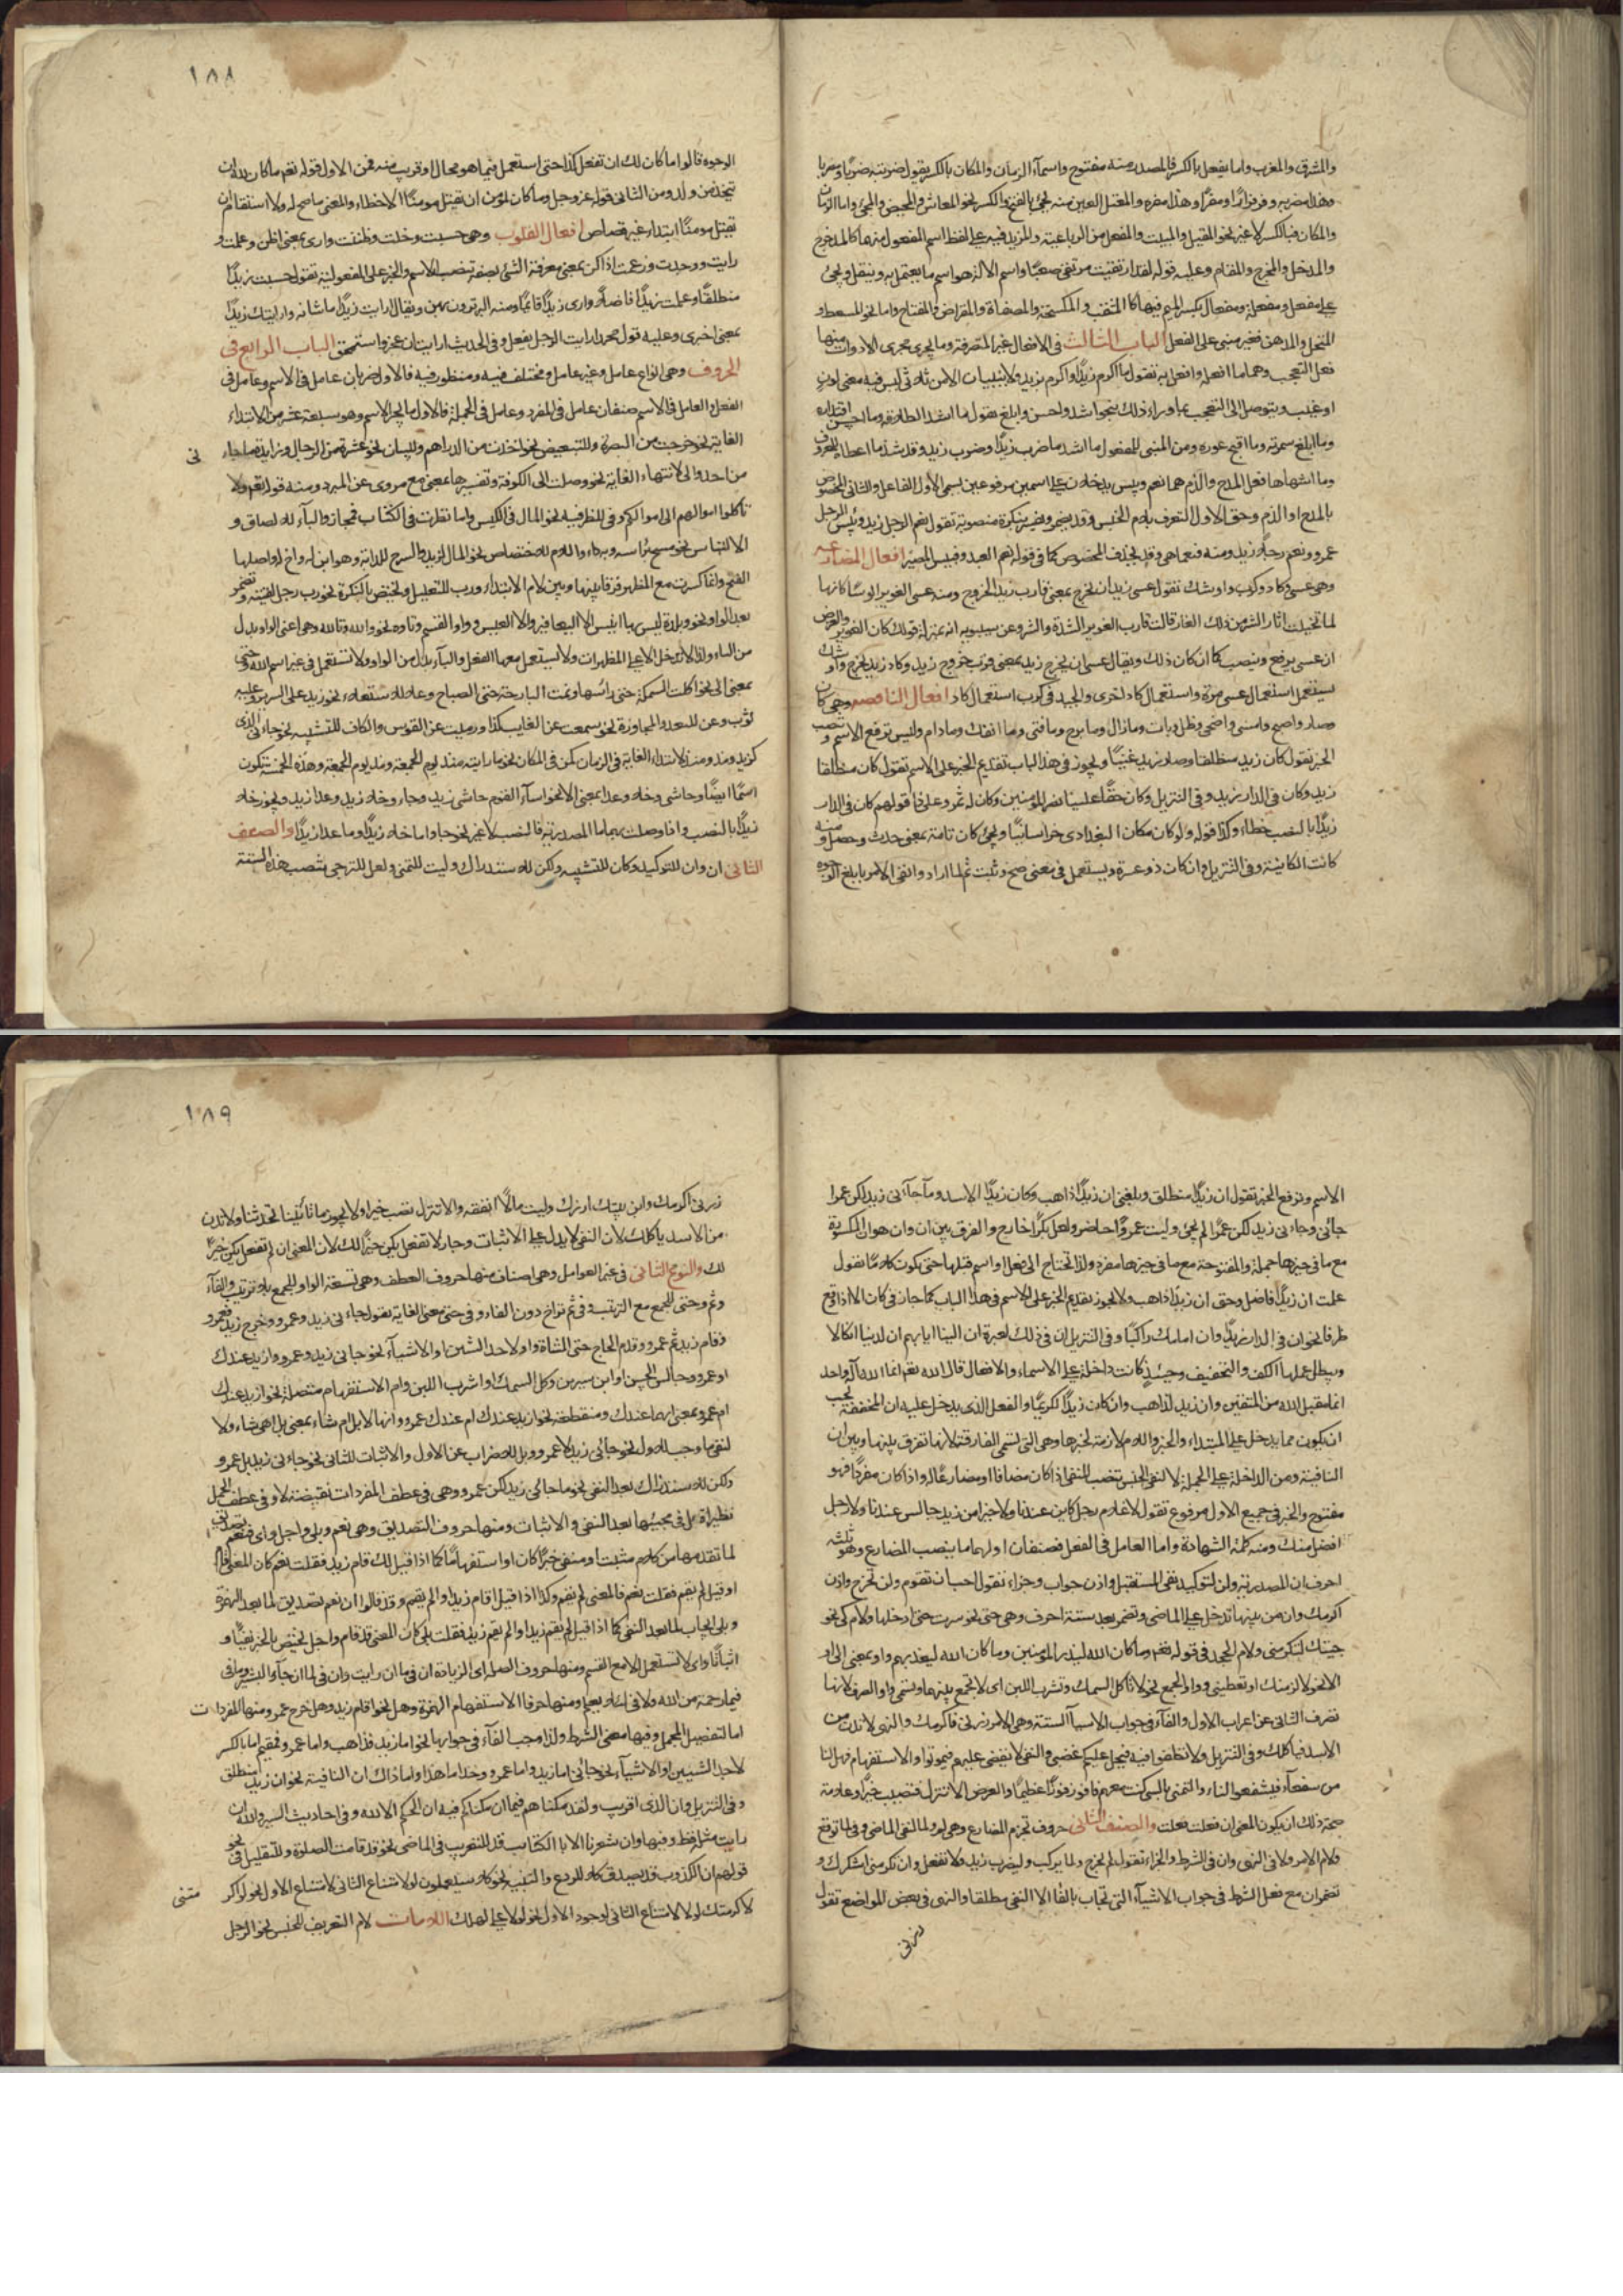 والمشرق والمغرب واما يفعل بالكسر فالمصدر منه مفتوح واسماء الزمان والمكان بالكسر يقول ضربته ضربا ومضربا
وهذا مضربه وفر فرارًا ومفرًا وهذا مفره والمعتل العين منه يجئ بالفتح والكسر نحو المعاش والمحيض والمجئ واما الزمان
والمكان فبالكسر لا غير نحو المقيل والمبيت والمفعل من الرباعية والمزيد فيه على لفظ اسم المفعول منها كالمدحرج
والمدخل والمخرج والمقام وعليه قوله لقد ارتقيت مرتقى صعبًا واسم الالة هو اسم ما يعتمل به وينقل ويجئ
على مفعل ومفعلة ومفعال بكسر الميم فيها كالمثقب والمكسحة والمصفاة والمقراض والمفتاح واما نحو المسعط و
المنخل والمدهن فغير مبنى على الفعل الباب الثالث فى الافعال غير المتصرفة وما يجرى مجرى الادوات منها
فعل التعجب وهما ما افعله وافعل به تقول ما اكرم زيدًا واكرم بزيد ولا يبنيان الا من ثلاثى ليس فيه معنى لون
او عيب ويتوصل الى التعجب بما وراء ذلك بنحو اشد واحسن وابلغ تقول ما اشد انطلاقه وما احسن اقتداره
وما ابلغ سمرته وما اقبح عوره ومن المبنى للمفعول ما اشد ما ضرب زيد وضرب زيد وقد شذ ما اعطاه للمعروف
وما اشهاها فعل المدح والذم هما نعم وبئس يدخلان على اسمين مرفوعين يسمى الاول الفاعل والثانى المخصوص
بالمدح او الذم وحق الاول التعرف بلام الجنس وقد يضمر ويفسر بنكرة منصوبة تقول نعم الرجل زيد وبئس الرجل
عمرو ونعم رجلًا زيد ومنه فنعما هى وقد يحذف المخصوص كما فى قوله نعم العبد وفبئس المصير افعال المقاربة
وهى عسى وكاد وكرب واوشك تقول عسى زيد ان يخرج بمعنى قارب زيد الخروج ومنه عسى الغوير ابؤسًا كانها
لما تخيلت اثار الشر من ذلك الغار قالت قارب الغوير الشدة والشر وعن سيبويه انه بمنزلة قولك كان الغوير والعرض
ان عسى يرفع وينصب كما ان كان ذلك ويقال عسى ان يخرج زيد بمعنى قرب خروج زيد وكاد زيد يخرج واوشك
يستعمل استعمال عسى مرة واستعمال كاد اخرى والجيد فى كرب استعمال كاد افعال الناقصة وهى كان
وصار واصبح وامسى واضحى وظل وبات ومازال ومابرح ومافتئ وما انفك ومادام وليس ترفع الاسم وتنصب
الخبر تقول كان زيد منطلقا وصار زيد غنيًا ويجوز فى هذا الباب تقديم الخبر على الاسم تقول كان منطلقا
زيد وكان فى الدار زيد وفى التنزيل وكان حقًا علينا نصر المؤمنين وكان له ثمر وعلى ذا قولهم كان فى الدار
زيدًا بالنصب خطاء وكذا قوله ولو كان مكان البغدادى خراسانيًا ويجئ كان تامة بمعنى حدث وحصل ومنه
كانت الكائنة وفى التنزيل وان كان ذو عسرة ويستعمل فى معنى صح وثبت ثم لما ارادوا نفى الامر بابلغ الوجوه
١٨٨
الوجوه قالوا ما كان لك ان تفعل كذا حتى استعمل فيما هو محال او قريب منه فمن الاول قوله تعم ما كان لله ان
يتخذ من ولد ومن الثانى قوله عز وجل وما كان لمؤمن ان يقتل مومنًا الا خطاء والمعنى ما صح له ولا استقام ان
يقتل مومنًا ابتداء غير قصاص افعال القلوب وهى حسبت وخلت وظننت وارى بمعنى اظن وعلمت و
رايت ووجدت وزعمت اذا كن بمعنى معرفة الشئ بصفة تنصب الاسم والخبر على المفعولية تقول حسبت زيدًا
منطلقًا وعلمت زيدًا فاضلًا وارى زيدًا قائمًا ومنه البر ترون بهن ويقال ارايت زيدًا ما شانه وارايتك زيدًا
بمعنى اخبرنى وعليه قول محمد ارايت الرجل يفعل وفى الحديث ارايت ان عجز واستحمق الباب الرابع فى
الحروف وهى انواع عامل وغير عامل ومختلف فيه ومنظور فيه فالاول ضربان عامل فى الاسم وعامل فى
الفعل والعامل فى الاسم صنفان عامل فى المفرد وعامل فى الجملة فالاول ما يجر الاسم وهو سبعة عشر من لابتداء
الغاية نحو خرجت من البصرة وللتبعيض نحو اخذت من الدراهم وللبيان نحو عشرة من الرجال وزايدة ما جاء
نى
من احد والى لانتهاء الغاية نحو وصلت الى الكوفة وتفسيرها بمعنى مع مروى عن المبرد ومنه قوله تعم ولا
تأكلوا اموالهم الى اموالكم وفى للظرفية نحو المال فى الكيس واما نظرت فى الكتاب فمجاز والباء للالصاق و
الالتباس نحو مسح براسه وبه داء واللام للاختصاص نحو المال لزيد والسرج للدابة وهو ابن له واخ له واصلها
الفتح وانما كسرت مع المظهر فرقا بينها وبين لام الابتداء ورب للتعليل وتختص بالنكرة نحو رب رجل لقيته وتضمر
بعد الواو نحو وبلدة ليس بها انيس الا اليعافير والا العيس و واو القسم وتاوه نحو والله وتالله وهى اعنى الواو بدل
من الباء ولذا لا تدخل الا على المظهرات ولا يستعمل معها الفعل والباء بدل من الواو ولا تستعمل فى غير اسم الله وحتى
بمعنى الى نحو اكلت السمكة حتى راسها ونمت البارحة حتى الصباح وعلى للاستعلاء نحو زيد على السرير وعليه
ثوب وعن للبعد والمجاوزة نحو سمعت عن الغايب كذا ورميت عن القوس والكاف للتشبيه نحو جاءنى الذى
كزيد ومذ ومنذ لابتداء الغاية فى الزمان كمن فى المكان نحو ما رايته منذ يوم الجمعة ومذ يوم الجمعة وهذه الخمسة تكون
اسمًا ايضًا وحاشى وخلا وعدا بمعنى الا نحو اساء القوم حاشى زيد وجاء وخلا زيد وعدا زيد ويجوز خلا
زيدًا بالنصب واذا وصلت بهما ما المصدرية فالنصب لا غير نحو جاوا ما خلا زيدًا وما عدا زيدًا والصنف
الثانى ان وان للتوكيد وكان للتشبيه ولكن للاستدراك وليت للتمنى ولعل للترجى تنصب هذه الستة
الاسم وترفع الخبر تقول ان زيدًا منطلق وبلغنى ان زيدًا ذاهب وكان زيدًا الاسد وما جاءنى زيد لكن عمرا
جائنى وجاءنى زيد لكن عمرًا لم يجئ وليت عمروًا حاضر ولعل بكرًا خارج والفرق بين ان وان هو ان المكسورة
مع ما فى حيزها جملة والمفتوحة مع ما فى حيزها مفرد ولذا تحتاج الى فعل او اسم قبلها حتى يكون كلامًا تقول
علمت ان زيدًا فاضل وحق ان زيدًا ذاهب ولا يجوز تقديم الخبر على الاسم فى هذا الباب كما جاز فى كان الا اذا وقع
ظرفا نحو ان فى الدار زيدًا وان امامك راكبًا وفى التنزيل ان فى ذلك لعبرة ان الينا ايابهم ان لدينا انكالا
ويبطل عملها الكف والتخفيف وحينئذ كانت داخلة على الاسماء والافعال قال الله تعم انما الله اله واحد
انما يتقبل الله من المتقين وان زيد لذاهب وان كان زيدًا لكريمًا والفعل الذى يدخل عليه ان المخففة يجب
ان يكون مما يدخل على المبتداء والخبر واللام لازمة لخبرها وهى التى تسمى الفارقة لانها تفرق بينها وبين ان
النافية ومن الداخلة على الجملة لا لنفى الجنس تنصب المنفى اذا كان مضافا او مضارعًا له واذا كان مفردًا فهو
مفتوح والخبر فى جميع الاول مرفوع تقول لا غلام رجل كاين عندنا ولا خيرا من زيد جالس عندنا ولا رجل
افضل منك ومنه كلمة الشهادة واما العامل فى الفعل فصنفان اولهما ما ينصب المضارع وهو ثلثة
احرف ان المصدرية ولن لتوكيد نفى المستقبل واذن جواب وجزاء تقول احب ان تقوم ولن تخرج واذن
اكرمك وان من بينها تدخل على الماضى وتضمر بعد ستة احرف وهى حتى نحو سرت حتى ادخلها ولام كى نحو
جيتك لتكرمنى ولام الجحد فى قوله تعم وما كان الله ليذر المؤمنين وما كان الله ليعذبهم واو بمعنى الى او
الا نحو لالزمنك او تعطينى وواو الجمع نحو لا تاكل السمك وتشرب اللبن اى لا تجمع بينهما وتسمى واو الصرف لانها
تصرف الثانى عن اعراب الاول والفاء فى جواب الاشياء الستة وهى الامر زرنى فاكرمك والنهى لا تدن من
الاسد فياكلك وفى التنزيل ولا تطغوا فيه فيحل عليكم غضبى والنفى لا يقضى عليهم فيموتوا والاستفهام فهل لنا
من شفعاء فيشفعوا لنا والتمنى يا ليتنى كنت معهم فافوز فوزًا عظيمًا والعرض الا تنزل فتصيب خيرًا وعلامة
صحة ذلك ان يكون المعنى ان فعلت فعلت والصنف الثانى حروف تجزم المضارع وهى لم ولما لنفى الماضى وفى لما توقع
ولام الامر ولا فى النهى وان فى الشرط والجزاء تقول لم يخرج ولما يركب وليضرب زيد ولا تفعل وان تكرمنى اشكرك و
تضمر ان مع فعل الشرط فى جواب الاشياء التى تجاب بالفا الا النفى مطلقا والنهى فى بعض المواضع تقول
زرنى
١٨٩
زرنى اكرمك واين بيتك ازرك وليت مالًا انفقه والا تنزل تصب خيرا ولا يجوز ما تأتينا تحدثنا ولا تدن
من الاسد ياكلك لان النفى لا يدل على الاثبات وجاز لا تفعل يكن خيرًا لك لان المعنى ان لم تفعل يكن خيرًا
لك والنوع الثانى فى غير العوامل وهى اصناف منها حروف العطف وهى تسعة الواو للجمع بلا ترتيب والفاء
وثم وحتى للجمع مع الترتيب وفى ثم تراخ دون الفاء وفى حتى معنى الغاية تقول جاءنى زيد وعمرو وخرج زيد فعمرو
وقام زيد ثم عمرو وقدم الحاج حتى المشاة واو لاحد الشيئن او الاشياء نحو جانى زيد وعمرو وازيد عندك
او عمرو وجالس الحسن او ابن سيرين وكل السمك او اشرب اللبن وام الاستفهام متصلة نحو ازيد عندك
ام عمرو بمعنى ايهما عندك ومنقطعة نحو ازيد عندك ام عندك عمرو وانها لابل ام شاء بمعنى بل اهى شاء ولا
لنفى ما وجب للاول نحو جائنى زيد لا عمرو وبل للاضراب عن الاول والاثبات للثانى نحو جاءنى زيد بل عمرو
ولكن للاستدراك بعد النفى نحو ما جائنى زيد لكن عمرو وهى فى عطف المفردات نقيضة لا وفى عطف الجمل
نظيرة بل فى مجيئها بعد النفى والاثبات ومنها حروف التصديق وهى نعم وبلى واجل واى فنعم تصديق
لما تقدمها من كلام مثبت او منفى خبرًا كان او استفهامًا كما اذا قيل لك قام زيد فقلت نعم كان المعنى قام
او قيل لم يقم فقلت نعم فالمعنى لم يقم وكذا اذا قيل اقام زيد او الم يقم وقد قالوا ان نعم تصديق لما بعد الهمزة
وبلى ايجاب لما بعد النفى كما اذا قيل لم يقم زيد او الم يقم زيد فقلت بلى كان المعنى قد قام واجل يختص بالخبر نفيًا و
اثباتًا واى لا تستعمل الا مع القسم ومنها حروف الصلة اى الزيادة ان فى ما ان رايت وان فى لما ان جاء البشير وما فى
فيما رحمة من الله ولا فى لئلا يعلم ومنها حرفا الاستفهام الهمزة وهل نحو اقام زيد وهل خرج عمرو ومنها المفردات
اما لتفصيل المجمل وفيها معنى الشرط ولذا وجب الفاء فى جوابها نحو اما زيد فذاهب واما عمرو فمقيم اما بالكسر
لاحد الشيئين او الاشياء نحو جائنى اما زيد واما عمرو وخذ اما هذا واما ذاك ان النافية نحو ان زيد منطلق
وفى التنزيل وان ادرى اقريب ولقد مكناهم فيما ان مكناكم فيه ان الحكم الا لله وفى احاديث السير والله ان
رايت مثله قط وفيها وان شعرنا الا بالكتايب قد للتقريب فى الماضى نحو قد قامت الصلوة وللتقليل فى نحو
قولهم ان الكذوب قد يصدق كلا للردع والتنبيه نحو كلا سيعلمون لو لامتناع الثانى لامتناع الاول نحو لو اكر
متنى
لاكرمتك لولا لامتناع الثانى لوجود الاول نحو لولا على لهلك اللامات لام التعريف للجنس نحو الرجل